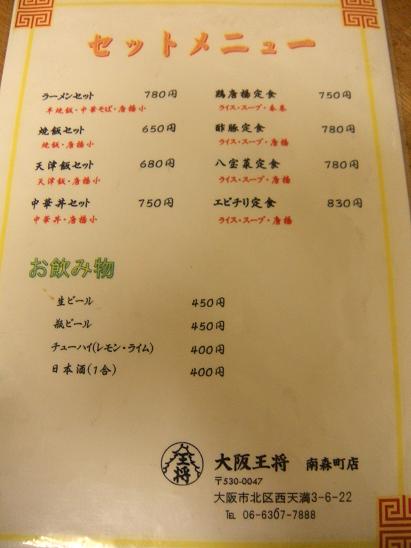 セットメニュー
ラーメンセット 780円
半焼飯・中華そば・唐揚小
焼飯セット 650円
焼飯・唐揚小
天津飯セット 680円
天津飯・唐揚小
中華丼セット 750円
中華丼・唐揚小
鶏唐揚定食 750円
ライス・スープ・春巻
酢豚定食 780円
ライス・スープ・唐揚
八宝菜定食 780円
ライス・スープ・唐揚
エビチリ定食 830円
ライス・スープ・唐揚
お飲み物
生ビール 450円
瓶ビール 450円
チューハイ(レモン・ライム) 400円
日本酒(1合) 400円
王将
大阪王将 南森町店
〒530-0047
大阪市北区西天満3-6-22
TEL 06-6367-7888